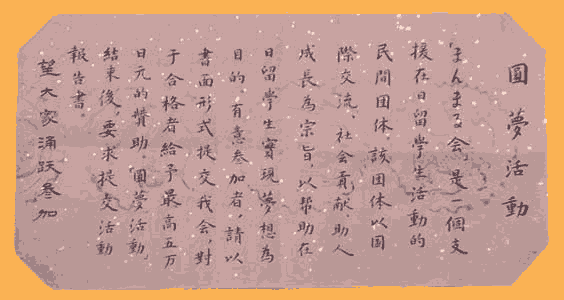 圓夢活動
「まんまる会」是一個支
援在日留學生活動的
民間団体該団体以国
際交流、社会貢献助人
成長為宗旨，以帮助在
日留學生實現夢想為
目的。有意叄加者，請以
書面形式提交我会，對
于合格者給予最高五万
日元的賛助。圓夢活動
結束後，要求提交活動
報告書
望大家涌跃叄加